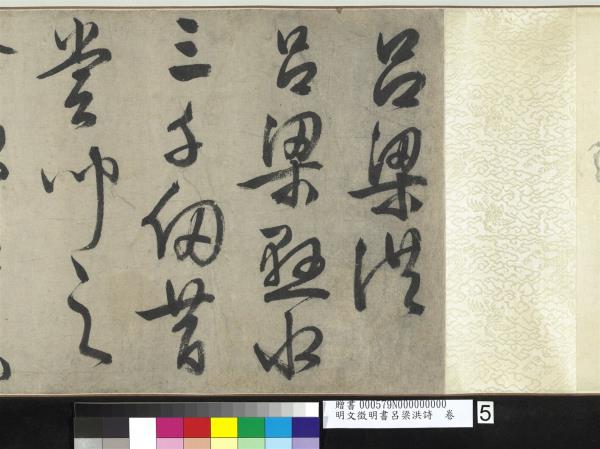 呂梁洪
呂梁懸水
三千仞昔
嘗聞之
贈書 000579N000000000
明文徵明書呂梁洪詩 卷
5